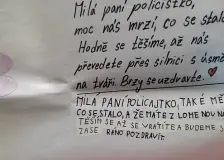 Milá paní policistko,
moc nás mrzí, co se stalo
Hodně se těšíme, až nás
převedete přes silnici s úsmě
na tváři. Brzy se uzdravte.
MILÁ PANÍ POLICAJTKO, TAKÉ MĚ
CO SE STALO, A ŽE MÁTE ZLOMENOU N
TĚŠÍM SE AŽ SE VRÁTÍTE A BUDEME S
ZASE RÁNO POZDRAVIT.